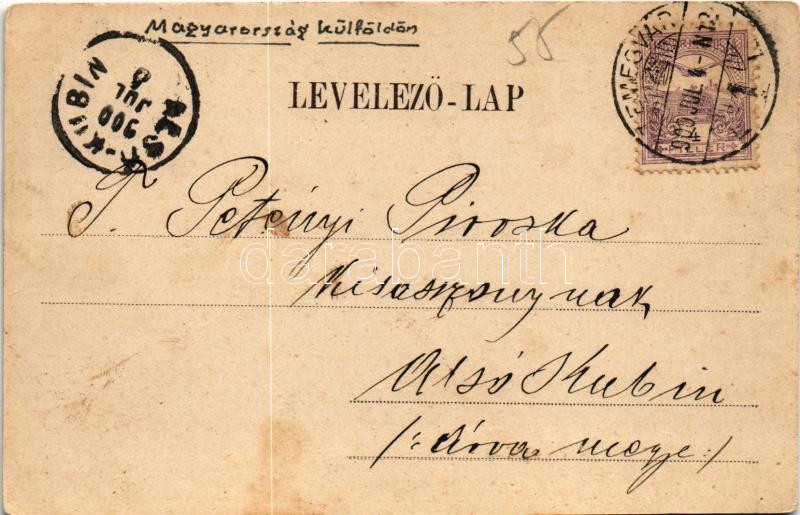 Magyarország külföldön
55
LEVELEZŐ-LAP
ALSÓ-KUBIN
900
JUL
8
900 JUL 4
FILLÉR
T. Petényi Piroska
kisasszonynak
Alsó Kubin
/: Árva megye :/
darabanth